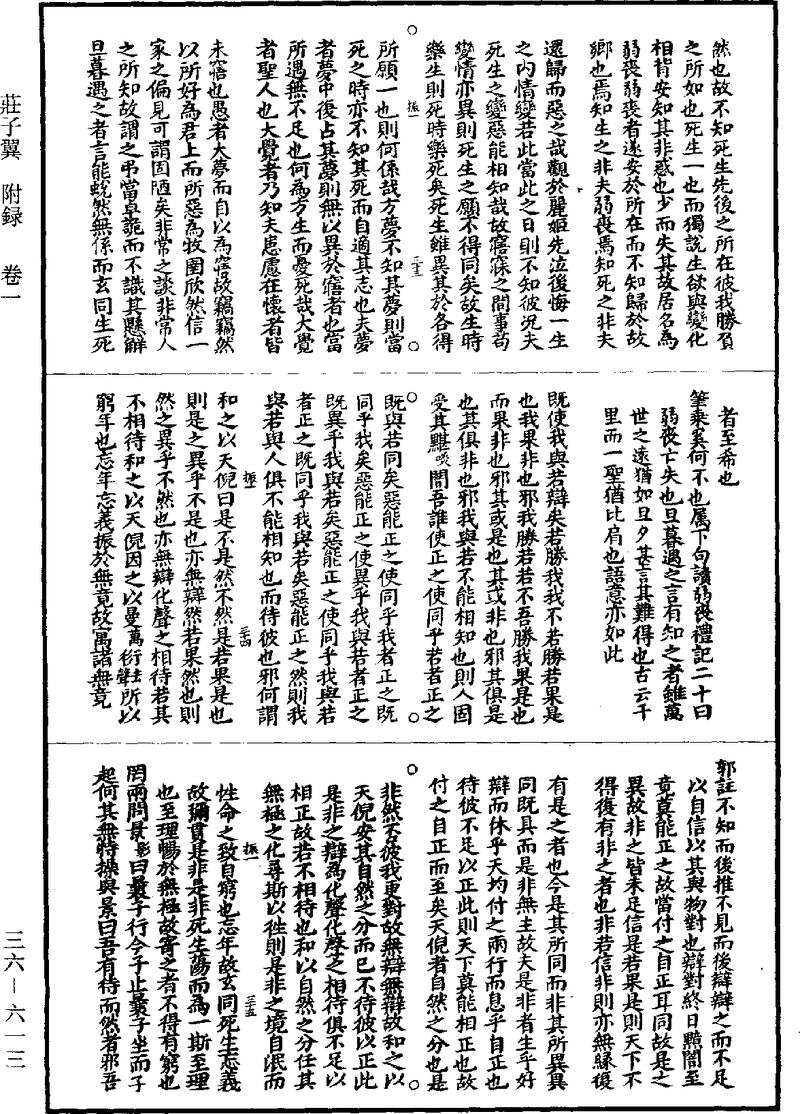 然也故不知死生先後之所在彼我勝負
之所如也死生一也而獨說生欲與變化
相背安知其非惑也少而失其故居名為
弱喪弱喪者遂安於所在而不知歸於故
鄉也焉知生之非夫弱喪焉知死之非夫
還歸而惡之哉觀於麗姬先泣後悔一生
之內情變若此當此之日則不知彼況夫
死生之變惡能相知哉故寤寐之間事苟
變情亦異則死生之願不得同矣故生時
樂生則死時樂死矣死生雖異其於各得
所願一也則何係哉方夢不知其夢則當
死之時亦不知其死而自適其志也夫夢
者夢中復占其夢則無以異於寤者也當
所遇無不足也何為方生而憂死哉大覺
者聖人也大覺者乃知夫患慮在懷者皆
未寤也愚者大夢而自以為寤故竊竊然
以所好為君上而所惡為牧圉欣然信一
家之偏見可謂固陋矣非常之談非常人
之所知故謂之弔當卓詭而不識其懸解
旦暮遇之者言能蛻然無係而玄同生死
者至希也
筆乘奚何不也屬下句讀弱喪禮記二十曰
弱喪亡失也旦暮遇之言有知之者雖萬
世之遠猶如旦夕甚言其難得也古云千
里而一聖猶比肩也語意亦如此
既使我與若辯矣若勝我我不若勝若果是
也我果非也邪我勝若若不吾勝我果是也
而果非也邪其或是也其或非也邪其俱是
也其俱非也邪我與若不能相知也則人固
受其黮啖闇吾誰使正之使同乎若者正之
既與若同矣惡能正之使同乎我者正之既
同乎我矣惡能正之使異乎我與若者正之
既異乎我與若矣惡能正之使同乎我與若
者正之既同乎我與若矣惡能正之然則我
與若與人俱不能相知也而待彼也邪何謂
和之以天倪曰是不是然不然是若果是也
則是之異乎不是也亦無辯然若果然也則
然之異乎不然也亦無辯化聲之相待若其
不相待和之以天倪因之以曼萬衍所以
窮年也忘年忘義振於無竟故寓諸無竟
郭註不知而後推不見而後辯辯之而不足
以自信以其與物對也辯對終日黮闇至
竟莫能正之故當付之自正耳同故是之
異故非之皆未足信是若果是則天下不
得復有非之者也非若信非則亦無緣復
有是之者也今是其所同而非其所異異
同既具而是非無主故夫是非者生乎好
辯而休乎天均付之兩行而息乎自正也
待彼不足以正此則天下莫能相正也故
付之自正而至矣天倪者自然之分也是
非然否彼我更對故無辯無辯故和之以
天倪安其自然之分而已不待彼以正此
是非之辯為化聲化聲之相待俱不足以
相正故若不相待也和以自然之分任其
無極之化尋斯以往則是非之境自泯而
性命之致自窮也忘年故玄同死生忘義
故彌貫是非是非死生蕩而為一斯至理
也至理暢於無極故寄之者不得有窮也
罔兩問景影曰曩子行今子止曩子坐今子
起何其無特操與景曰吾有待而然者邪吾
莊子翼 附録 卷一
三六－六一三